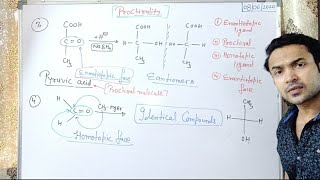 Prochirality
08/06/2020
③
COOH
C=O
CH3
+ H⊕
NaBH4
COOH
H
OH
CH3
COOH
HO
H
CH3
① Enantiotopic
ligand
② Prochiral
③ Homotopic
ligand
④ Enantiotopic
face
Enantiotopic face
Enantiomers
Pyruvic acid
Prochiral molecule?
④
H
H
C=O
CH3-MgBr
Identical Compounds
CH3
H
H
OH
Homotopic face